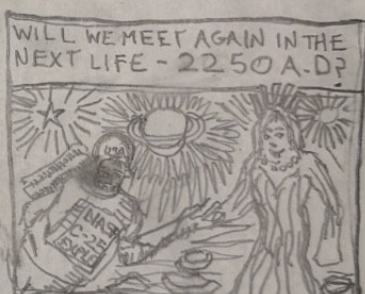 WILL WE MEET AGAIN IN THE
NEXT LIFE - 2250 A.D?
USA
NASA
C-25
EXPLO